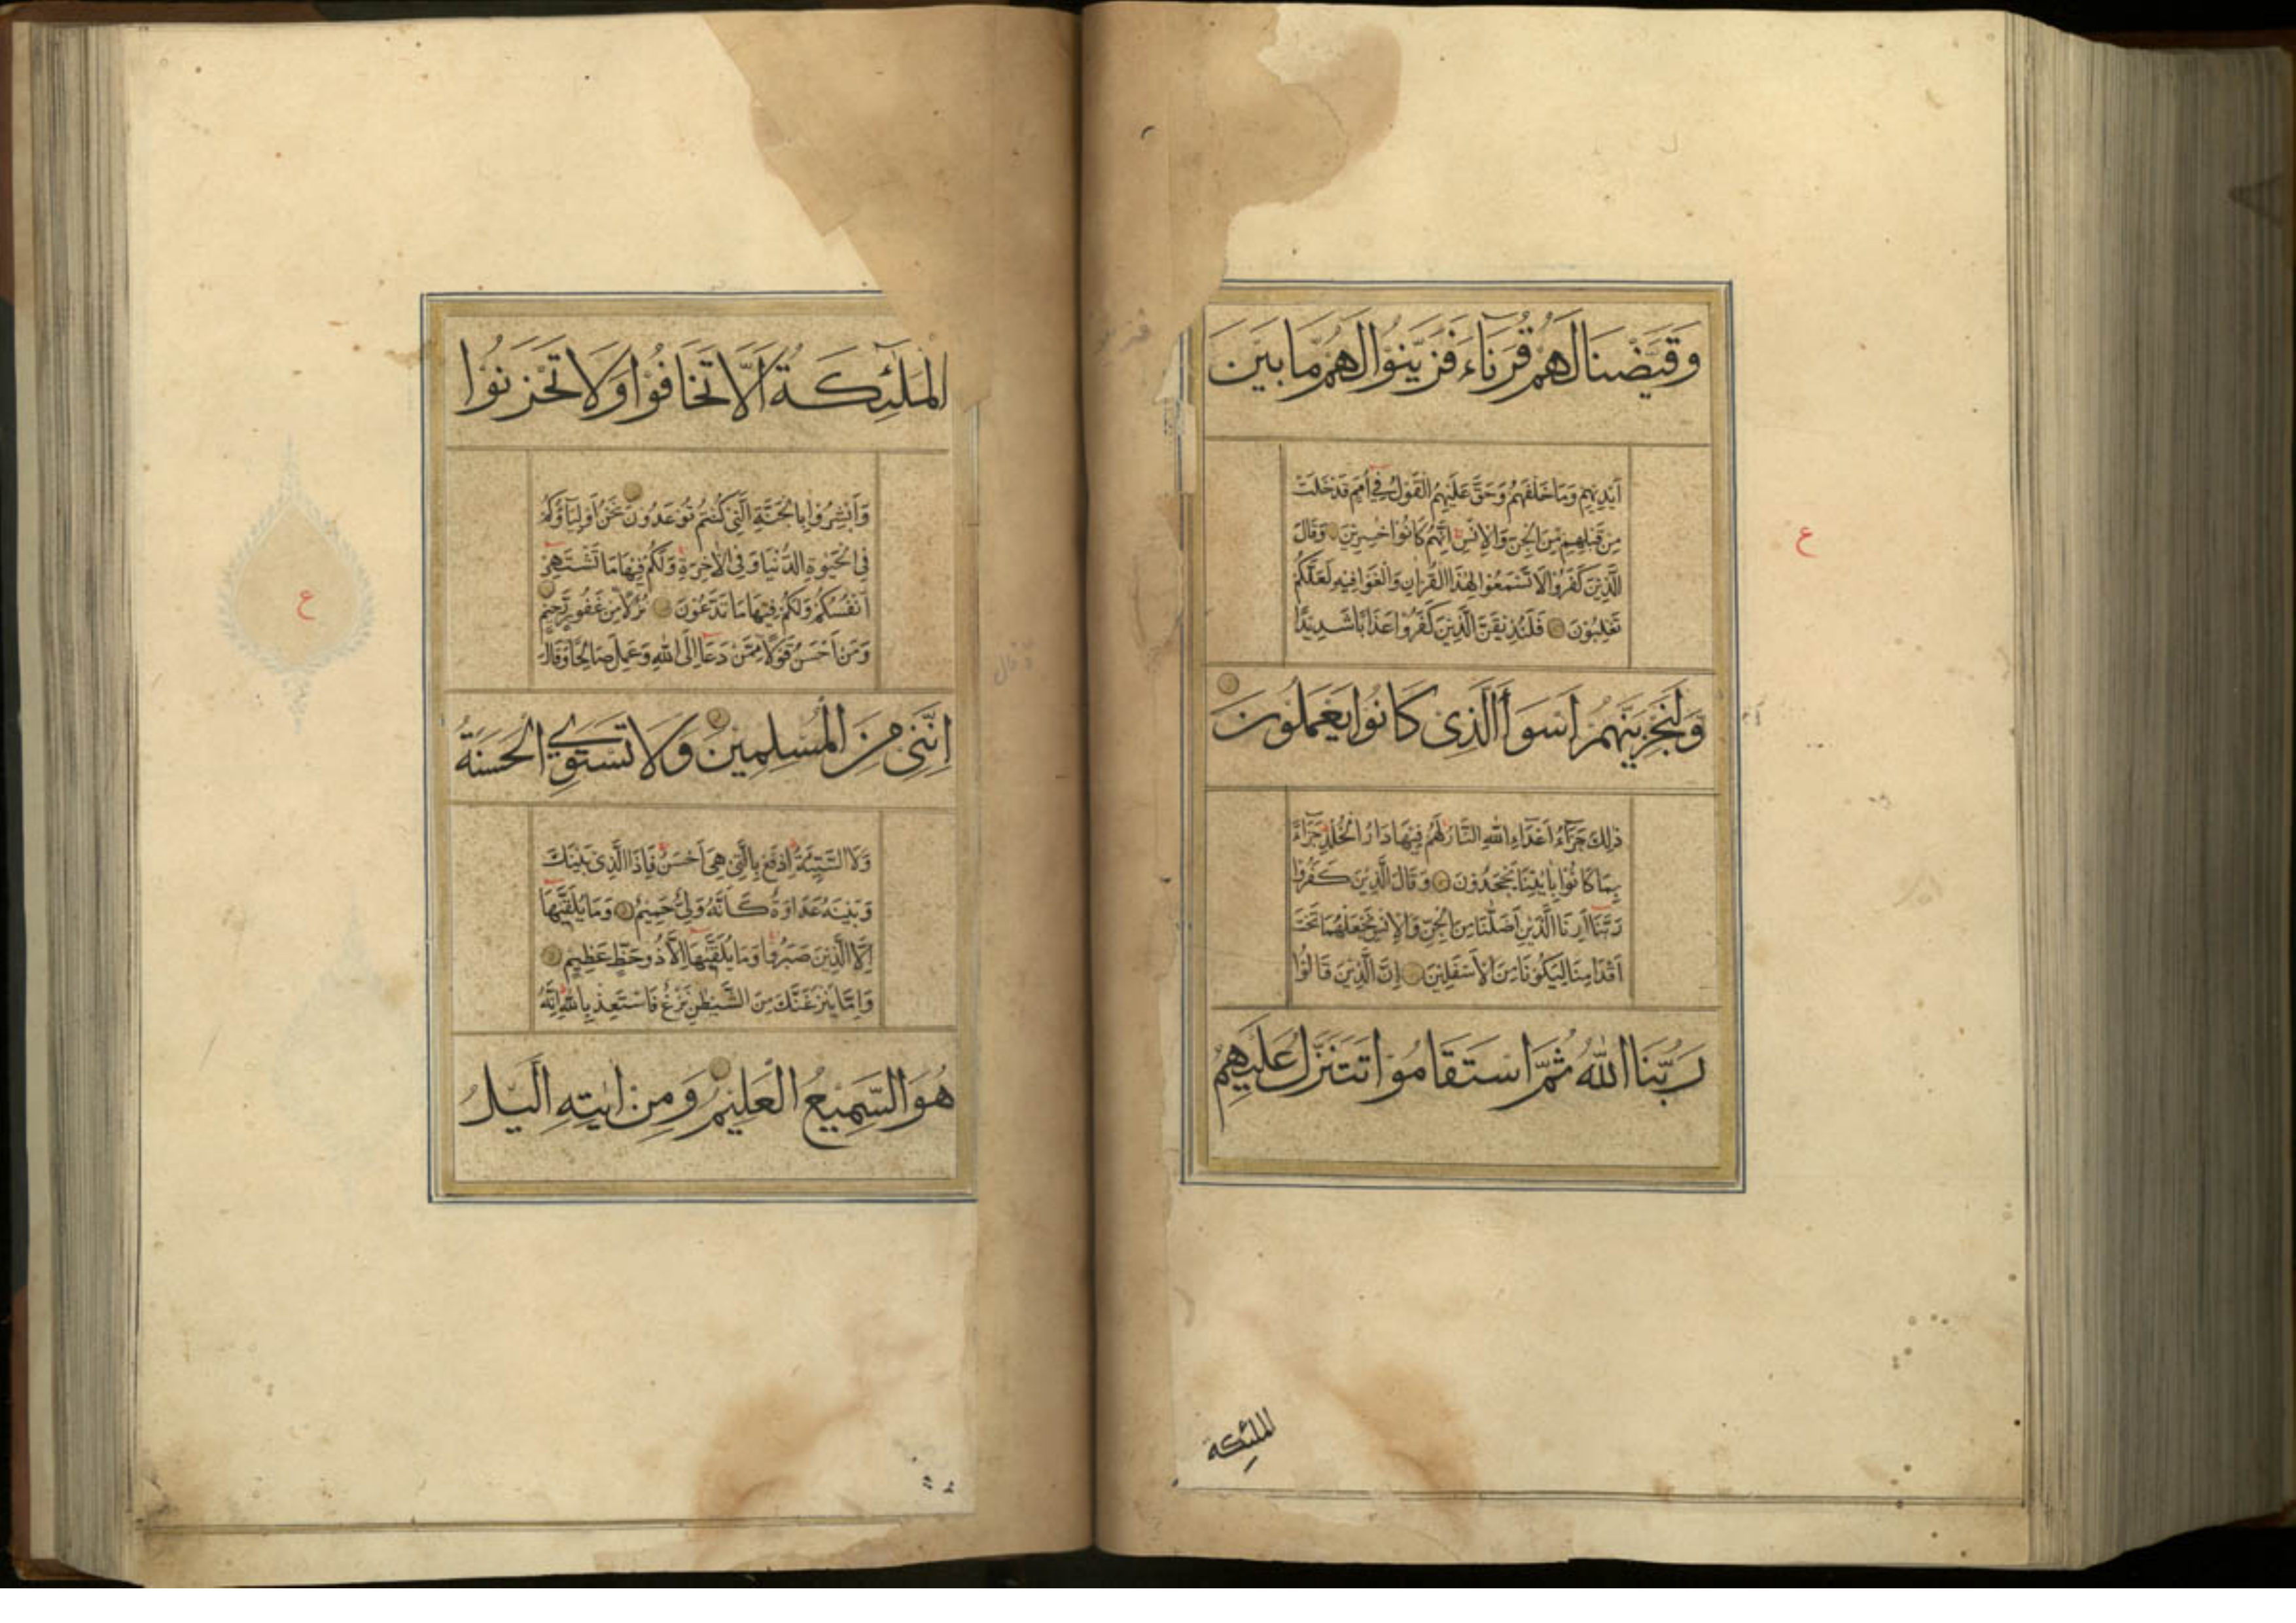 وَقَيَّضْنَا لَهُمْ قُرَنَاءَ فَزَيَّنُوا لَهُمْ مَا بَيْنَ
اَيْدِيهِمْ وَمَا خَلْفَهُمْ وَحَقَّ عَلَيْهِمُ الْقَوْلُ فِي اُمَمٍ قَدْ خَلَتْ
مِنْ قَبْلِهِمْ مِنَ الْجِنِّ وَالْاِنْسِ اِنَّهُمْ كَانُوا خٰسِرِيْنَ وَقَالَ
الَّذِيْنَ كَفَرُوْا لَا تَسْمَعُوْا لِهٰذَا الْقُرْاٰنِ وَالْغَوْا فِيْهِ لَعَلَّكُمْ
تَغْلِبُوْنَ فَلَنُذِيْقَنَّ الَّذِيْنَ كَفَرُوْا عَذَابًا شَدِيْدًا
وَلَنَجْزِيَنَّهُمْ اَسْوَاَ الَّذِىْ كَانُوا يَعْمَلُوْنَ
ذٰلِكَ جَزَآءُ اَعْدَآءِ اللّٰهِ النَّارُ لَهُمْ فِيْهَا دَارُ الْخُلْدِ جَزَآءً
بِمَا كَانُوْا بِاٰيٰتِنَا يَجْحَدُوْنَ وَقَالَ الَّذِيْنَ كَفَرُوْا
رَبَّنَا اَرِنَا الَّذَيْنِ اَضَلّٰنَا مِنَ الْجِنِّ وَالْاِنْسِ نَجْعَلْهُمَا تَحْتَ
اَقْدَامِنَا لِيَكُوْنَا مِنَ الْاَسْفَلِيْنَ اِنَّ الَّذِيْنَ قَالُوْا
رَبُّنَا اللّٰهُ ثُمَّ اسْتَقَامُوْا تَتَنَزَّلُ عَلَيْهِمُ
الملئكة
ع
الْمَلٰٓئِكَةُ اَلَّا تَخَافُوْا وَلَا تَحْزَنُوْا
وَاَبْشِرُوْا بِالْجَنَّةِ الَّتِىْ كُنْتُمْ تُوْعَدُوْنَ نَحْنُ اَوْلِيَآؤُكُمْ
فِى الْحَيٰوةِ الدُّنْيَا وَفِى الْاٰخِرَةِ وَلَكُمْ فِيْهَا مَا تَشْتَهِىْ
اَنْفُسُكُمْ وَلَكُمْ فِيْهَا مَا تَدَّعُوْنَ نُزُلًا مِنْ غَفُوْرٍ رَحِيْمٍ
وَمَنْ اَحْسَنُ قَوْلًا مِمَّنْ دَعَا اِلَى اللّٰهِ وَعَمِلَ صَالِحًا وَقَالَ
اِنَّنِىْ مِنَ الْمُسْلِمِيْنَ وَلَا تَسْتَوِى الْحَسَنَةُ
وَلَا السَّيِّئَةُ اِدْفَعْ بِالَّتِىْ هِىَ اَحْسَنُ فَاِذَا الَّذِىْ بَيْنَكَ
وَبَيْنَهُ عَدَاوَةٌ كَاَنَّهُ وَلِىٌّ حَمِيْمٌ وَمَا يُلَقّٰيهَا
اِلَّا الَّذِيْنَ صَبَرُوْا وَمَا يُلَقّٰيهَا اِلَّا ذُوْ حَظٍّ عَظِيْمٍ
وَاِمَّا يَنْزَغَنَّكَ مِنَ الشَّيْطٰنِ نَزْغٌ فَاسْتَعِذْ بِاللّٰهِ اِنَّهُ
هُوَ السَّمِيْعُ الْعَلِيْمُ وَمِنْ اٰيٰتِهِ الَّيْلُ
ع